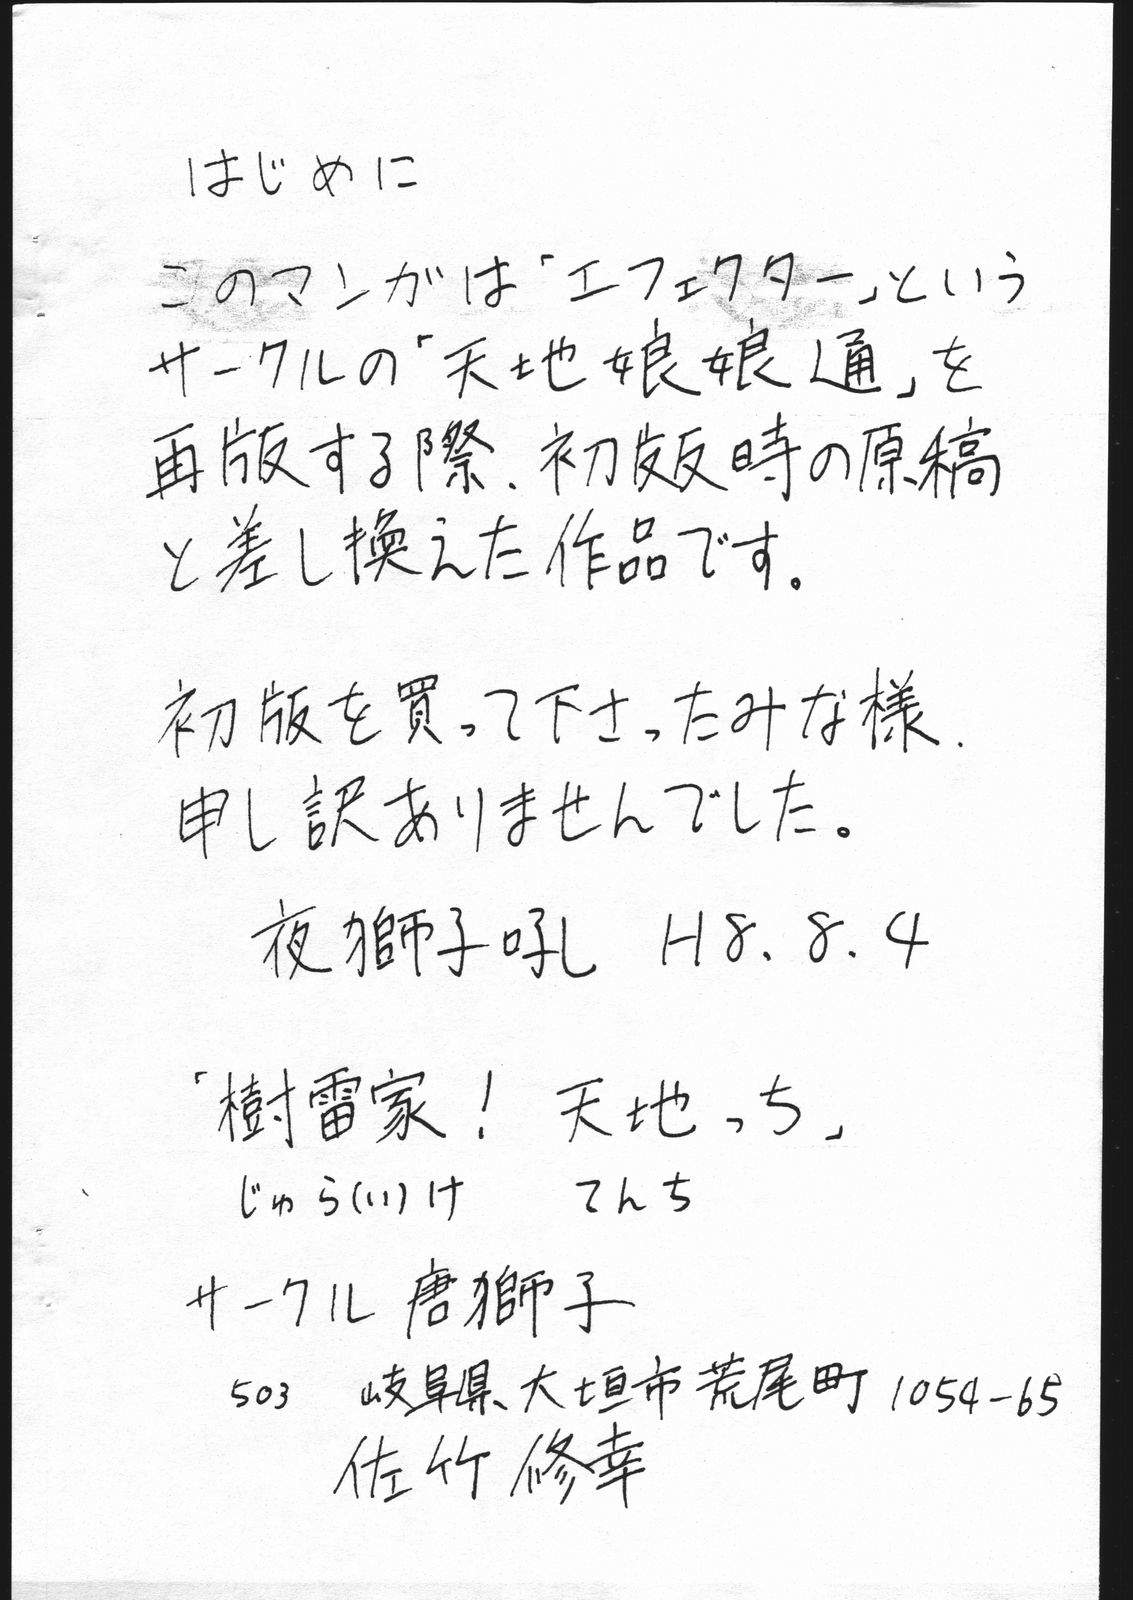 はじめに
このマンガは「エフェクター」という
サークルの「天地娘娘通」を
再版する際、初版時の原稿
と差し換えた作品です。
初版を買って下さったみな様、
申し訳ありませんでした。
夜獅子吼し H8.8.4
「樹雷家! 天地っち」
じゅら(い)け てんち
サークル 唐獅子
503 岐阜県大垣市荒尾町1054-65
佐竹修幸